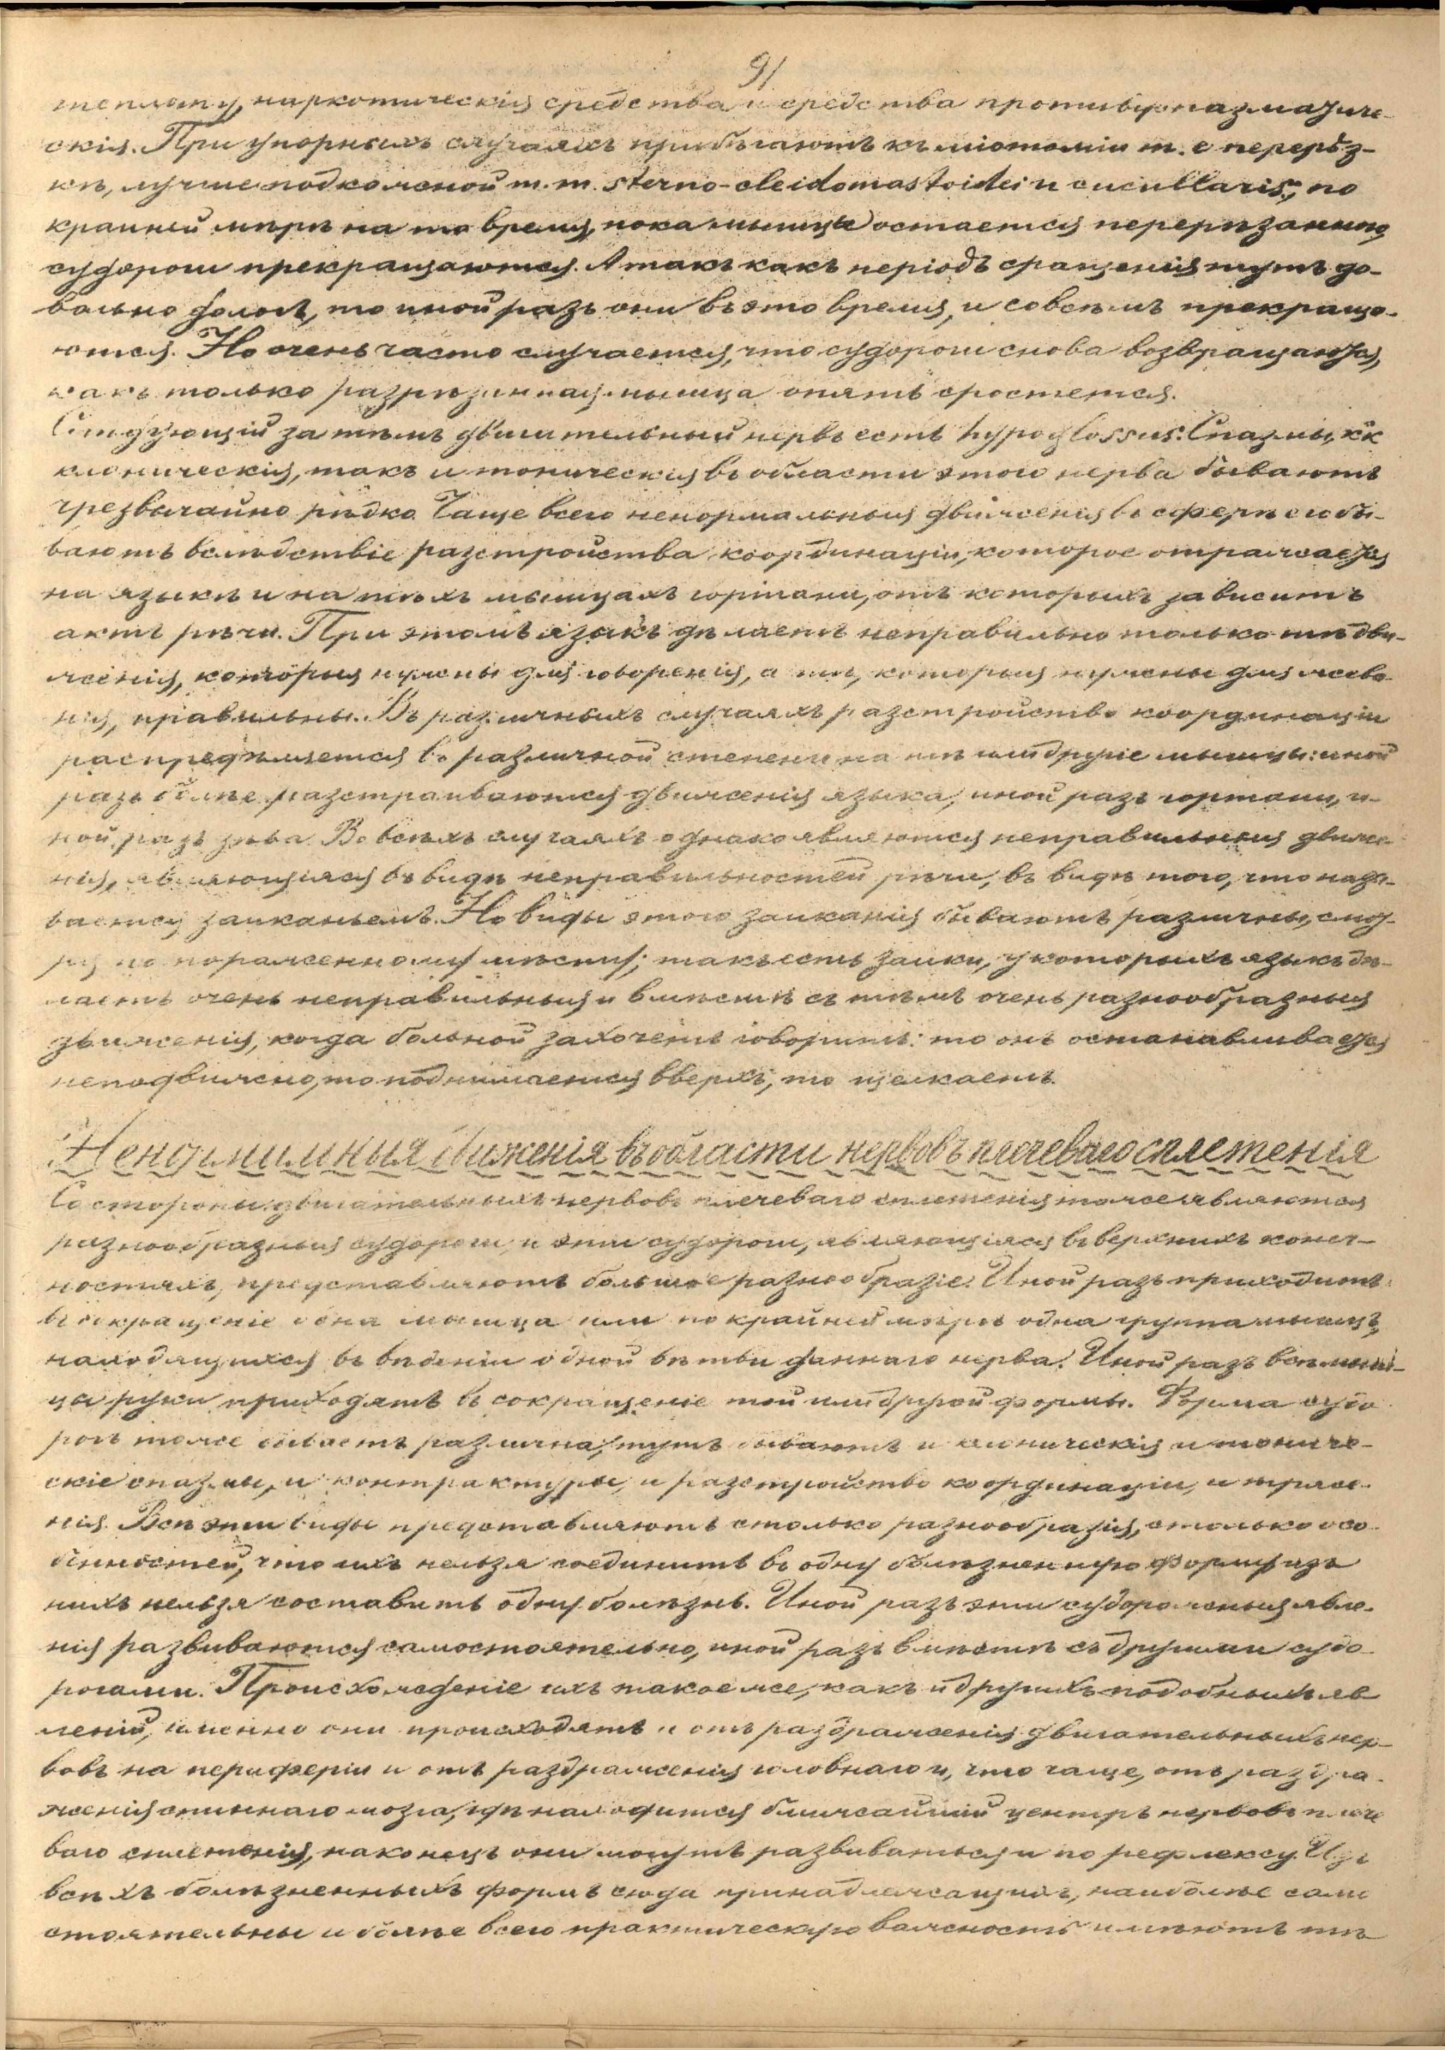 91
теплоту, наркотическія средства и средства противуспазмати­че-
скія. При упорныхъ случаяхъ прибѣгаютъ къ міотоміи т. е перерѣз-
кѣ, лучше подкожной m. m. sterno-cleidomastoidei и cucullaris; по
крайней мѣрѣ на то время, пока мышца остается перерѣзанною
судороги прекращаются. А такъ какъ періодъ сращенія тутъ до-
вольно дологъ, то иной разъ они въ это время, и совсѣмъ прекраща-
ются. Но очень часто случается, что судороги снова возвращаются,
какъ только разрѣзанная мышца опять сростется.
Слѣдующій за тѣмъ двигательный нервъ есть hypoglossus. Спазмы, кк
клоническія, такъ и тоническія въ области этого нерва бываютъ
чрезвычайно рѣдко. Чаще всего ненормальныя движенія въ сферѣ его бы-
ваютъ вслѣдствіе разстройства координаціи, которое отражается
на языкѣ и на тѣхъ мышцахъ гортани, отъ которыхъ зависитъ
актъ рѣчи. При этомъ языкъ дѣлаетъ неправильно только тѣ дви-
женія, которыя нужны для говоренія, а тѣ, которыя нужны для жева-
нія, правильны. Въ различныхъ случаяхъ разстройство координаціи
распредѣляется въ различной степени на тѣ или другіе мышцы: иной
разъ болѣе разстраиваются движенія языка, иной разъ гортани, и-
ной разъ зѣва. Во всѣхъ случаяхъ однако являются неправильныя движе-
нія, являющіяся въ видѣ неправильностей рѣчи, въ видѣ того, что назы-
вается заиканьемъ. Но виды этого заиканія бываютъ различны, смот-
ря по пораженному мѣсту; такъ есть заики, у которыхъ языкъ дѣ-
лаетъ очень неправильныя и вмѣстѣ съ тѣмъ очень разнообразныя
движенія, когда больной захочетъ говорить: то онъ останавливается
неподвижно, то поднимается вверхъ, то щелкаетъ.
Ненормальныя движенія въ области нервовъ плечеваго сплетенія
Со стороны двигательныхъ нервовъ плечеваго сплетенія тоже являются
разнообразныя судороги, и эти судороги, являющіяся въ верхнихъ конеч-
ностяхъ, представляютъ большое разнообразіе. Иной разъ приходитъ
въ сокращеніе одна мышца или по крайней мѣрѣ одна группа мышцъ,
находящихся въ вѣденіи одной вѣтви даннаго нерва. Иной разъ всѣ мыш-
цы руки приходятъ въ сокращеніе той или другой формы. Форма судо
рогъ тоже бываетъ различна, тутъ бываютъ и клоническія и тониче-
скіе спазмы, и контрактуры, и разстройство координаціи, и трясе-
нія. Всѣ эти виды представляютъ столько разнообразія, столько осо-
бенностей, что ихъ нельзя соединить въ одну болѣзненную форму изъ
нихъ нельзя составить одну болѣзнь. Иной разъ эти судорожныя явле-
нія развиваются самостоятельно, иной разъ вмѣстѣ съ другими судо-
рогами. Происхожденіе ихъ такое же, какъ и другихъ подобныхъ яв
леній, именно они происходятъ и отъ раздраженія двигательныхъ нер-
вовъ на периферіи и отъ раздраженія головнаго и, что чаще, отъ раздра-
женія спиннаго мозга, гдѣ находится ближайшій центръ нервовъ плече
ваго сплетенія, наконецъ они могутъ развиваться и по рефлексу. Изъ
всѣхъ болѣзненныхъ формъ сюда принадлежащихъ, наиболѣе само
стоятельны и болѣе всего практическую важность имѣютъ тѣ